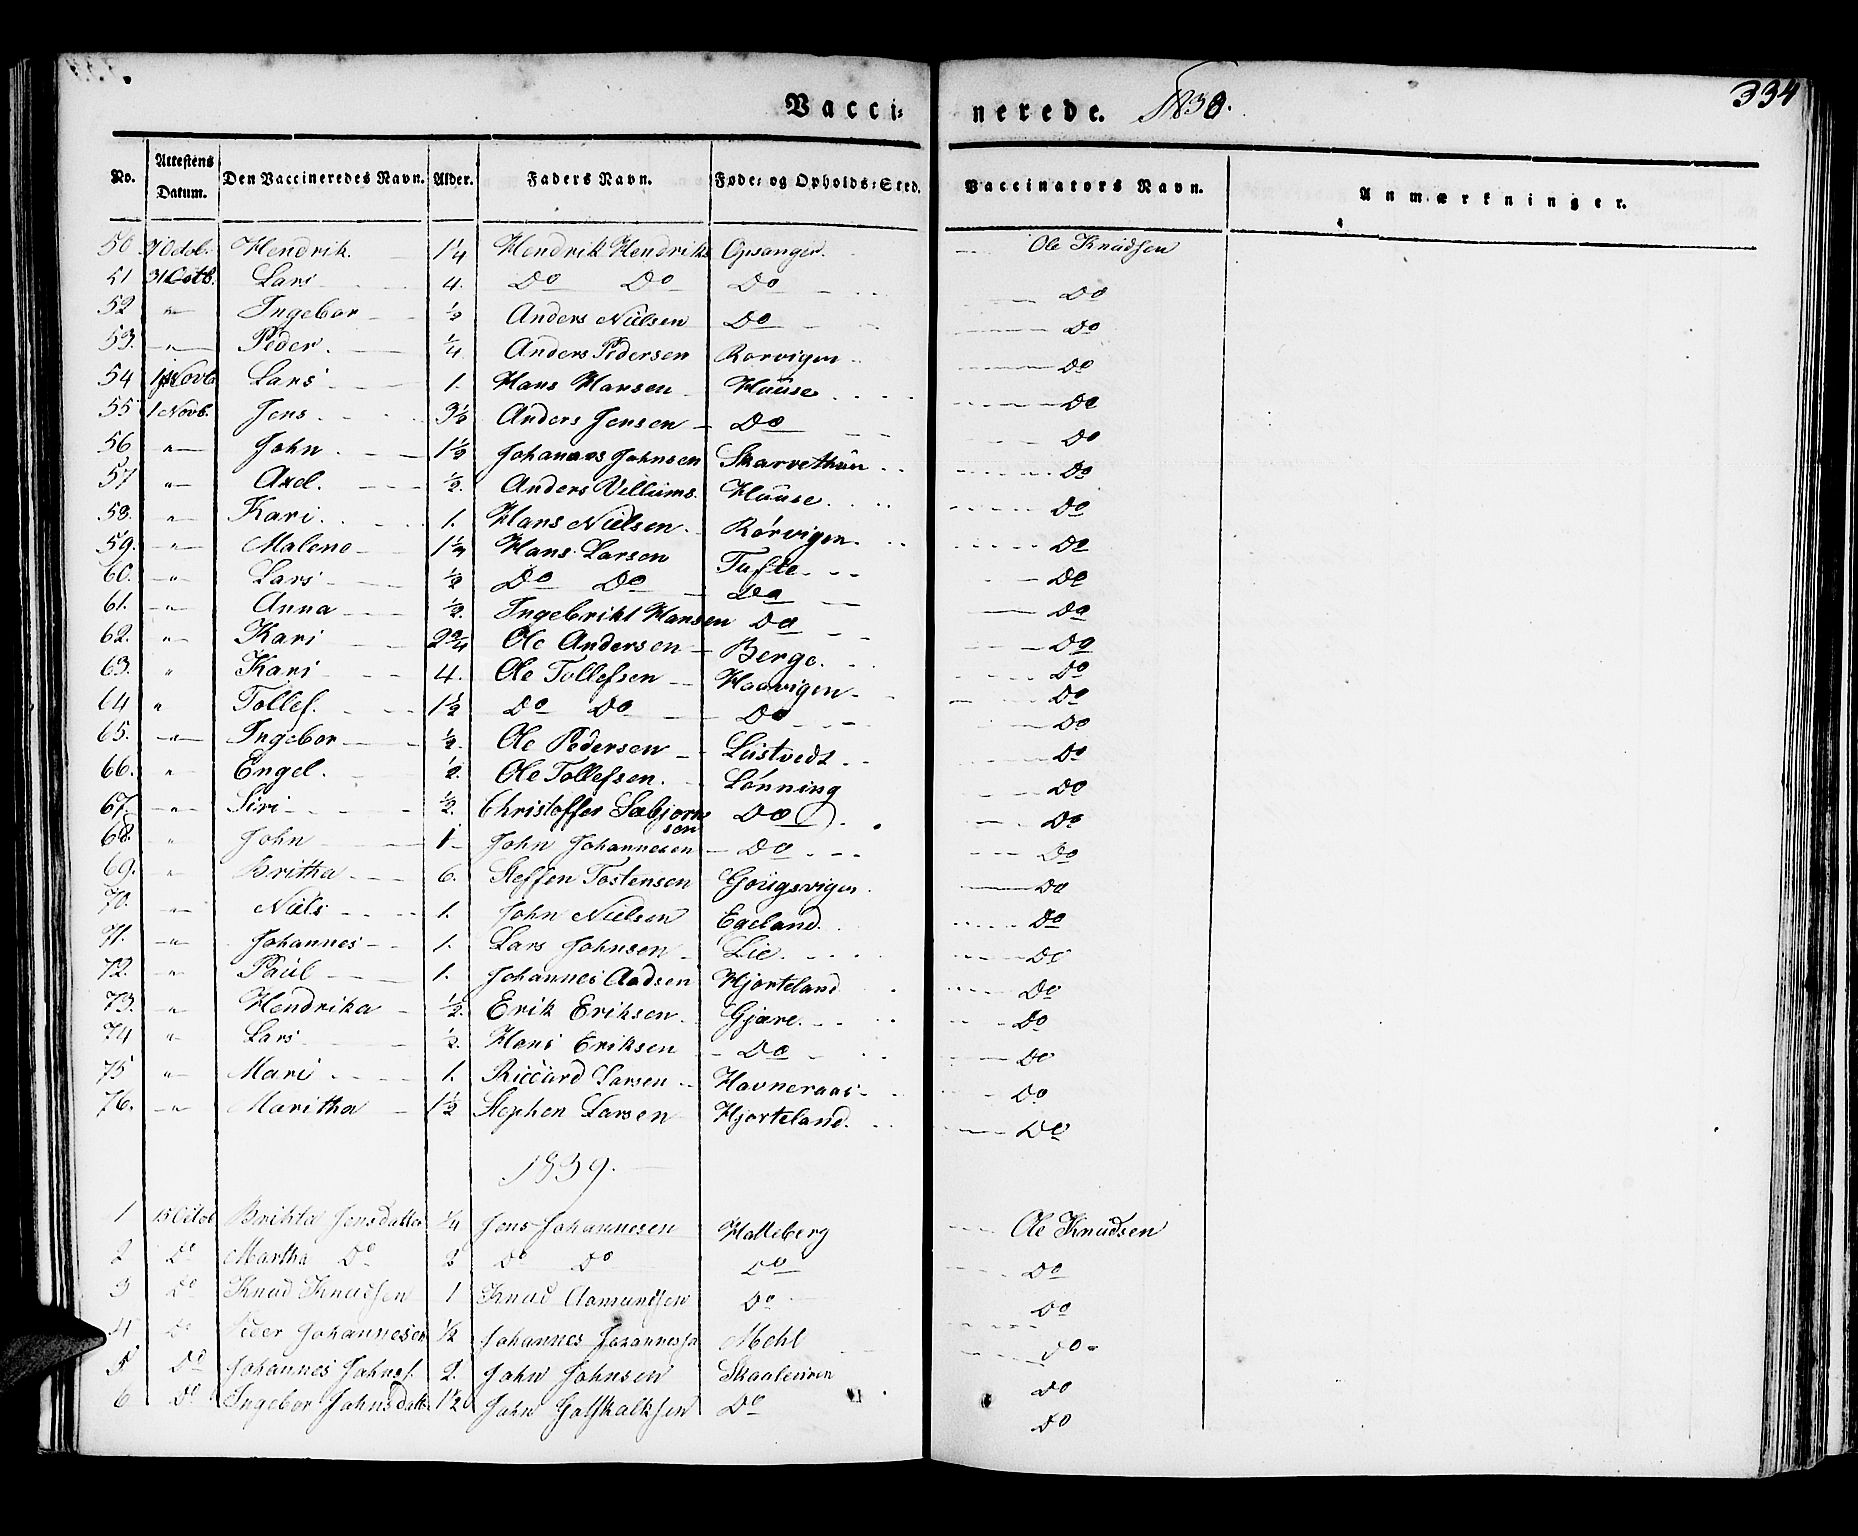 Vacci- nerede. 1838. 334
No. Attestens Datum. Den Vaccineredes Navn. Alder. Faders Navn. Føde- og Opholds-Sted. Vaccinators Navn. Anmærkninger.
50 Octob. Hendrik. 1¼ Hendrik Hendriks Opsanger. Ole Knudsen
51 31 Octb. Lars 4. Do Do Do Do
52 " Ingebor ½ Anders Nielsen Do Do
53. " Peder. ¼ Anders Pedersen Rørvigen Do
54 Novb Lars 1. Hans Hansen Huuse Do
55 1 Novb. Jens 3½ Anders Jensen Do Do
56 " John. 1½ Johannes Johnsen Skarvethun Do
57 " Axel. ½ Anders Villums. Huuse Do
58. " Kari. 1. Hans Nielsen Rørvigen. Do
59. " Malene 1¼ Hans Larsen Tufte Do
60. " Lars ½ Do Do Do Do
61. " Anna ½ Ingebrikt Hansen Do Do
62. " Kari 2¾ Ole Andersen Berge. Do
63. " Kari 4. Ole Tollefsen Haavigen Do
64 " Tollef. 1½ Do Do Do Do
65. " Ingebor ½ Ole Pedersen Lustvedt Do
66. " Engel. ½ Ole Tollefsen. Lønning Do
67. " Siri ½ Christoffer Sæbjørn Do Do
sen
68. " John 1 John Johannesen Do Do
69. " Britha 6. Steffen Tostensen Gougsvigen Do
70. " Niels 1. John Nielsen Egeland. Do
71. " Johannes 1. Lars Johnsen Lie. Do
72. " Paul 1. Johannes Aadsen Hjorteland Do
73. " Hendrika ½ Erik Eriksen Gjære. Do
74 " Lars ½ Hans Eriksen Do Do
75 " Mari 1. Riccard Larsen Havneraas Do
76. " Maritha 1½ Stephen Larsen Hjorteland. Do
1839.
1 15 Octob Brihta Jensdatter ¼ Jens Johannesen Halleberg Ole Knudsen
2 Do Martha Do 2 Do Do Do Do
3 Do Knud Knudsen 1 Knud Aamundsen Do Do
4 Do Peder Johannesen ½ Johannes Johannessn Mehl Do
5 Do Johannes Johns. 2. John Johnsen Skaaleviken Do
6 Do Ingebor Johnsdatt 1½ John Gotskalksen Do Do